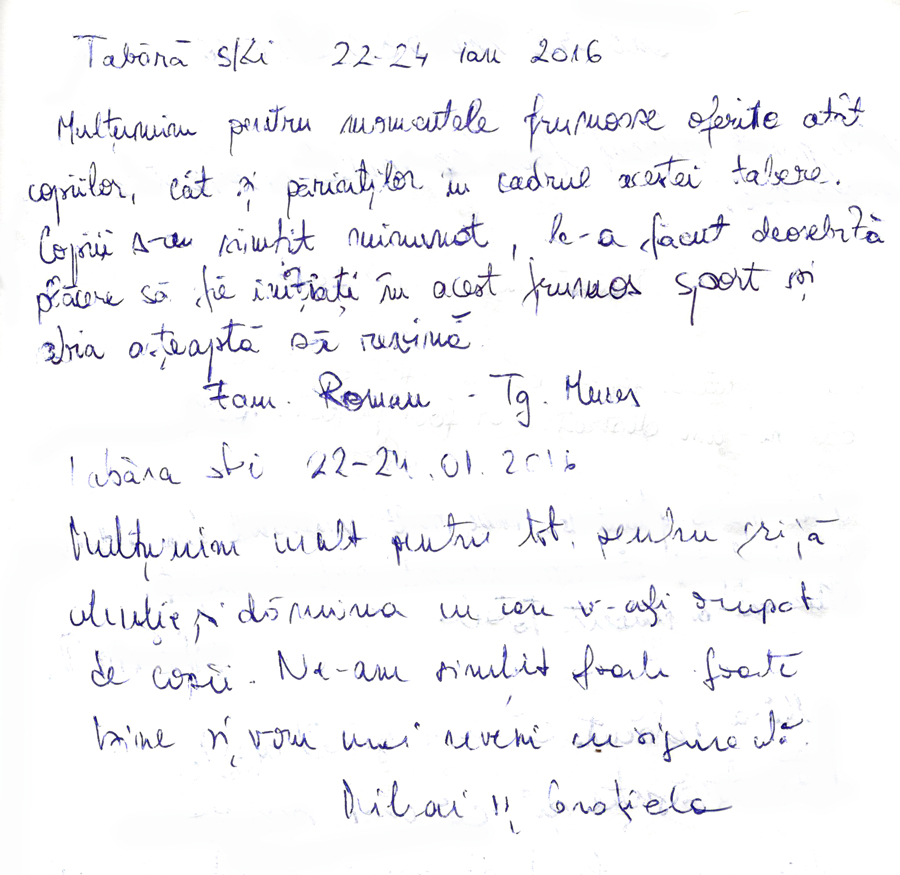 Tabără ski 22-24 ian 2016
Mulțumim pentru momentele frumoase oferite atât
copiilor, cât și părinților în cadrul acestei tabere.
Copiii s-au simțit minunat, le-a făcut deosebită
plăcere să fie inițiați în acest frumos sport și
abia așteaptă să revină
Fam. Roman - Tg. Mureș
Tabăra ski 22-24.01.2016
Mulțumim mult pentru tot, pentru grijă
și dăruirea cu care v-ați ocupat
de copii. Ne-am simțit foarte foarte
bine și vom mai reveni cu siguranță.
Mihai și Grațiela